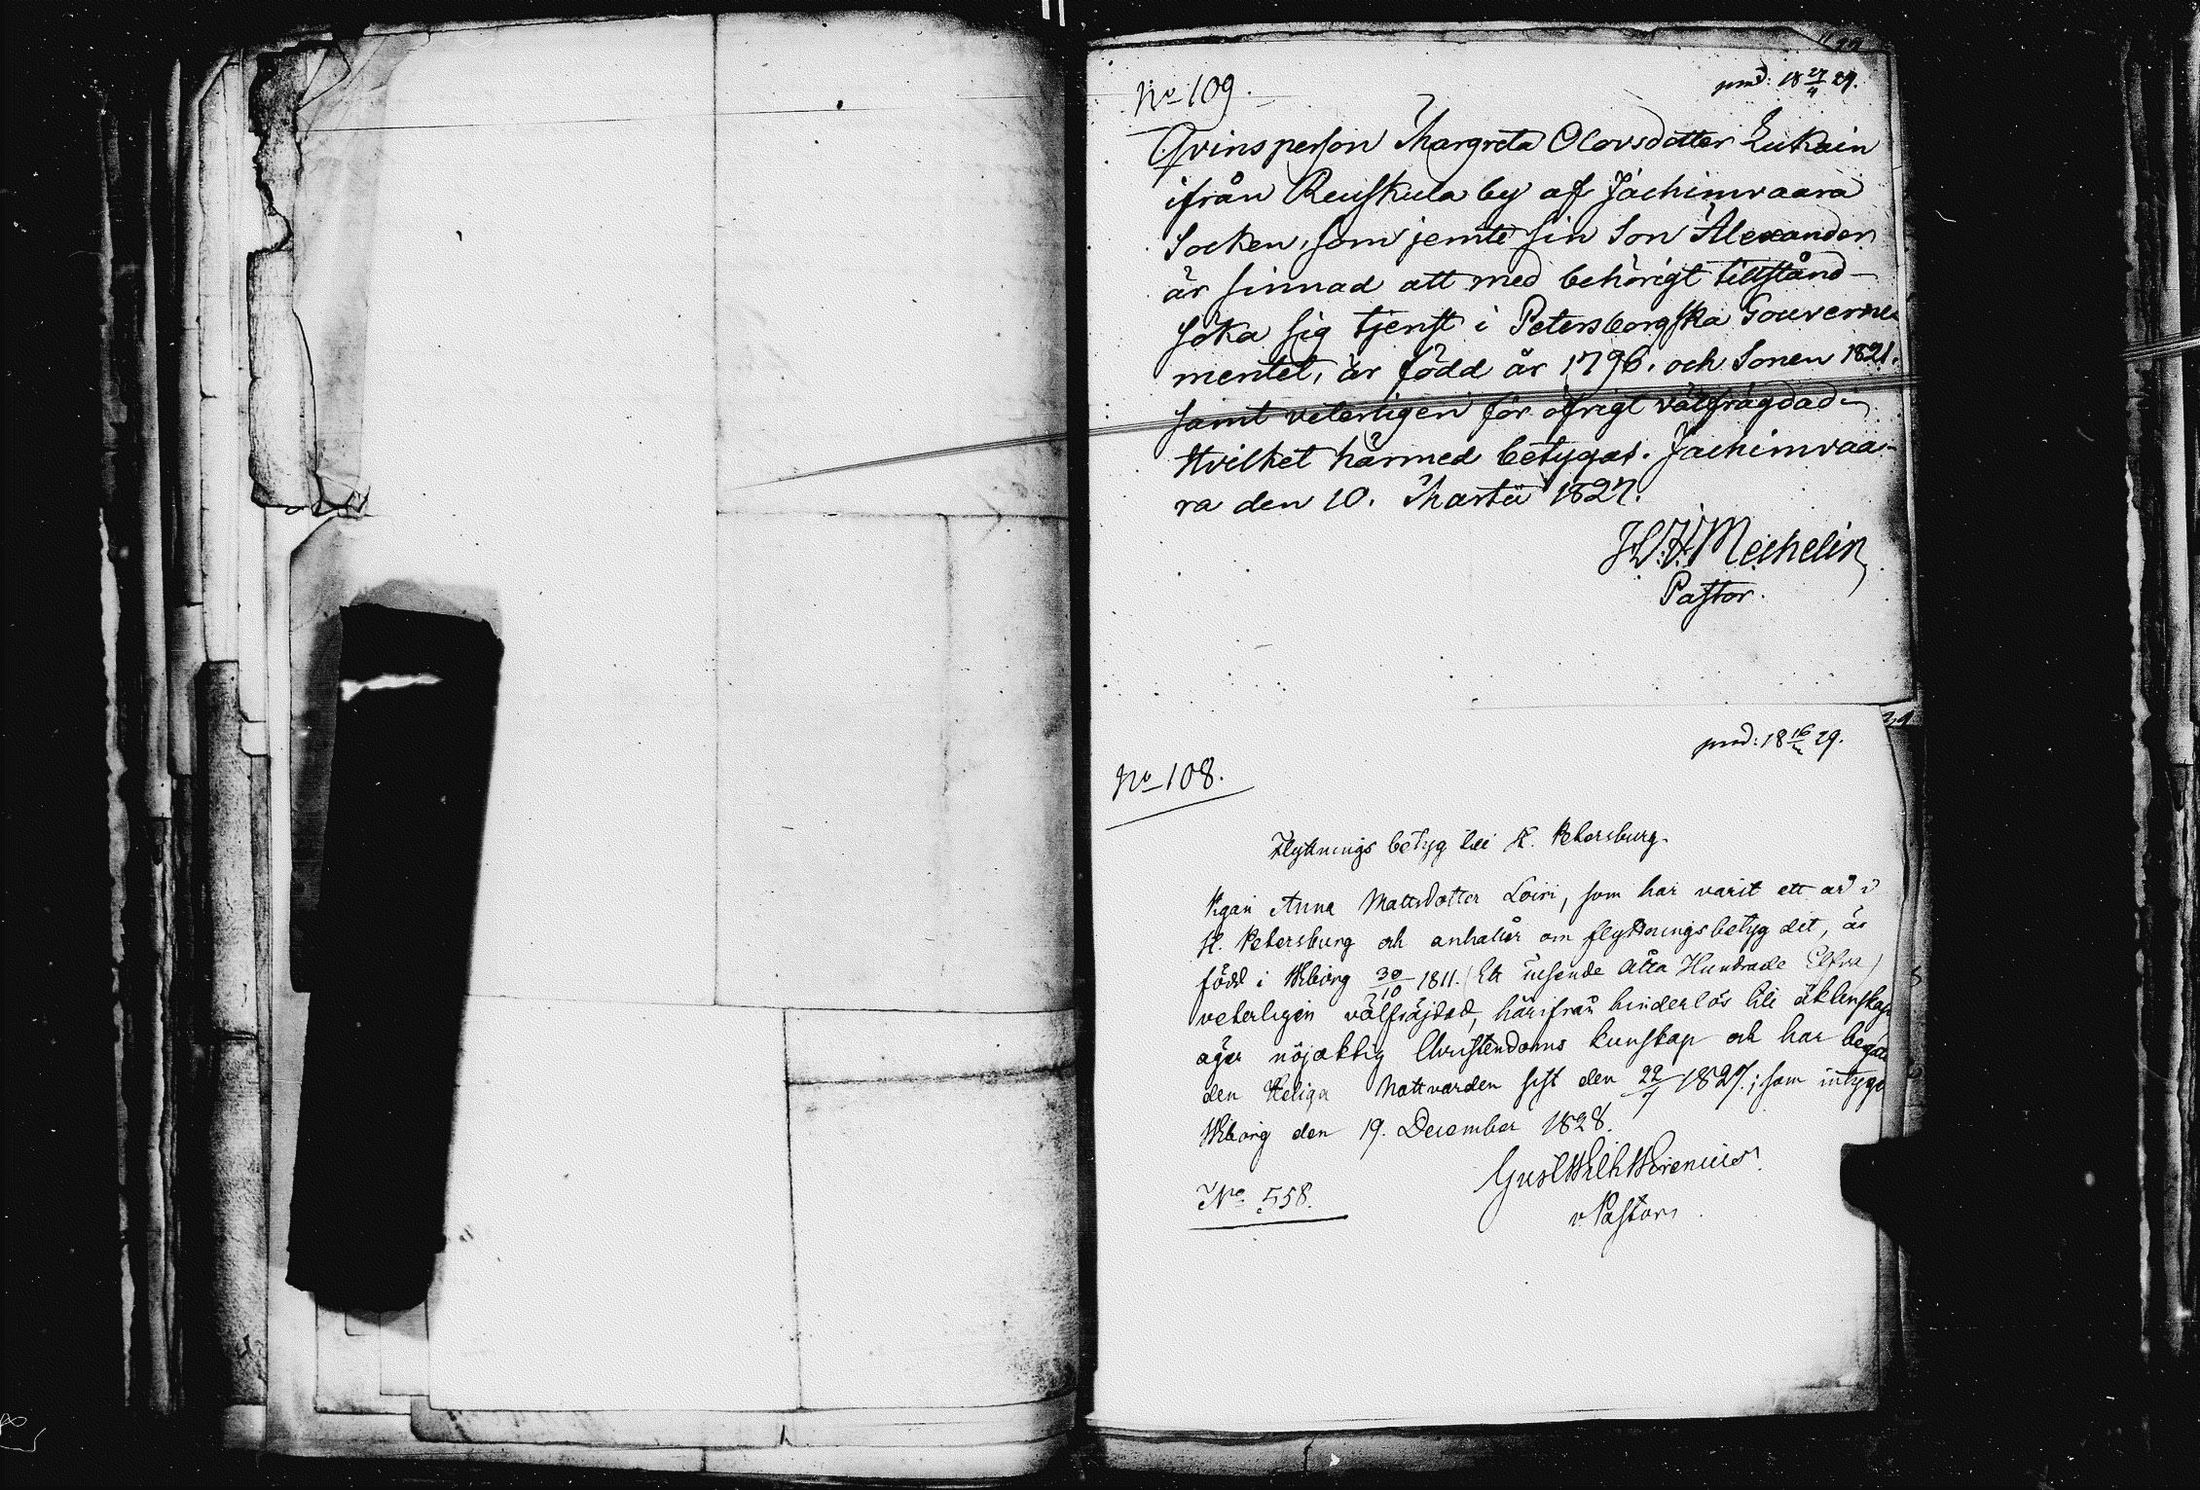 No 109.
prod: 18 27/4 29.
Qvinsperson Margreta Olovsdotter Lukain
ifrån Reuskula by af Jachimvaara
Socken, som jemte sin Son Alexander
är sinnad att med behörigt tillstånd
söka sig tjenst i Petersborgska Gouverne-
mentet, är född år 1796. och Sonen 1821.
samt veterligen för öfrigt välfrägdad.
Hvilket härmed betygas. Jachimvaa-
ra den 10. Martii 1827.
Mechelin
Pastor.
prod: 18 16/ 29.
No 108.
Flyttnings betyg till St. Petersburg.
Pigan Anna Mattsdotter Loiri, som har varit ett år i
St. Petersburg och anhåller om flyttningsbetyg dit, är
född i Wiborg 30/10 1811. (Ett tusende Åtta Hundrade Elfva)
veterligen välfräjdad, härifrån hinderlös till äktenskap
äger nöjaktig Christendoms kunskap och har begått
den Heliga Nattvarden sist den 22/7 1827.; som intygar
Wiborg den 19. December 1828.
Gust Wilh Wirenius
v. Pastor.
No 558.